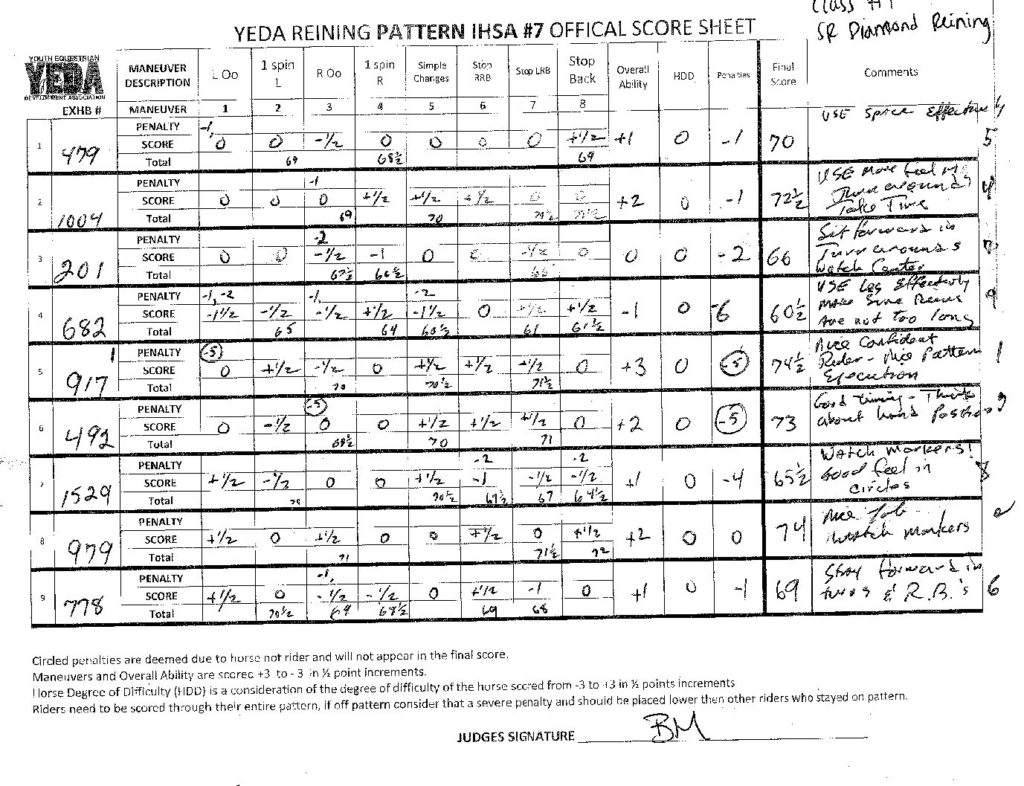 Class #1
YEDA REINING PATTERN IHSA #7 OFFICAL SCORE SHEET
SR Diamond Reining
YOUTH EQUESTRIAN
YEDA
DEVELOPMENT ASSOCIATION
MANEUVER DESCRIPTION L Oo 1 spin L R Oo 1 spin R Simple Changes Stop RRB Stop LRB Stop Back Overall Ability HDD Penalties Final Score Comments
EXHB # MANEUVER 1 2 3 4 5 6 7 8
1 479
PENALTY -1,
SCORE 0 0 -1/2 0 0 0 0 +1/2 +1 0 -1 70
Total 69 68½ 69
USE Space Effectively 5
2 1004
PENALTY -1
SCORE 0 0 0 +1/2 +1/2 +1/2 0 0 +2 0 -1 72½
Total 69 70
USE More feel in
Turn arounds 4
Take Time
3 201
PENALTY -2
SCORE 0 0 -1/2 -1 0 0 -1/2 0 0 0 -2 66
Total 67½ 66½ 66
Sit forward in
Turn arounds 7
Watch Center
4 682
PENALTY -1, -2 -1 -2
SCORE -1½ -1/2 -1/2 +1/2 -1½ 0 +1/2 +1/2 -1 0 -6 60½
Total 65 64 60½ 61 61½
USE Leg Effectively
Make Sure Reins 9
Are not too long
5 917
PENALTY -5
SCORE 0 +1/2 -1/2 0 +1/2 +1/2 +1/2 0 +3 0 -5 74½
Total 70 70½ 71½
Nice Confident
Rider - Nice Pattern 1
Execution
6 492
PENALTY -5
SCORE 0 -1/2 0 0 +1/2 +1/2 +1/2 0 +2 0 -5 73
Total 69½ 70 71
Good timing - Think
about hand position 3
7 1529
PENALTY -2 -2
SCORE +1/2 -1/2 0 0 +1/2 -1 -1/2 -1/2 +1 0 -4 65½
Total 70 70½ 67½ 67 64½
Watch Markers!
Good feel in 8
circles
8 979
PENALTY
SCORE +1/2 0 +1/2 0 0 +1/2 0 +1/2 +2 0 0 74
Total 71 71½ 72
Nice Job 2
Watch markers
9 778
PENALTY -1,
SCORE +1/2 0 -1/2 -1/2 0 +1/2 -1 0 +1 0 -1 69
Total 70½ 69 68½ 69 68
Stay forward in
turns & R.B.'s 6
Circled penalties are deemed due to horse not rider and will not appear in the final score.
Maneuvers and Overall Ability are scored +3 to -3 in ½ point increments.
Horse Degree of Difficulty (HDD) is a consideration of the degree of difficulty of the horse scored from -3 to +3 in ½ points increments
Riders need to be scored through their entire pattern, if off pattern consider that a severe penalty and should be placed lower then other riders who stayed on pattern.
JUDGES SIGNATURE BM